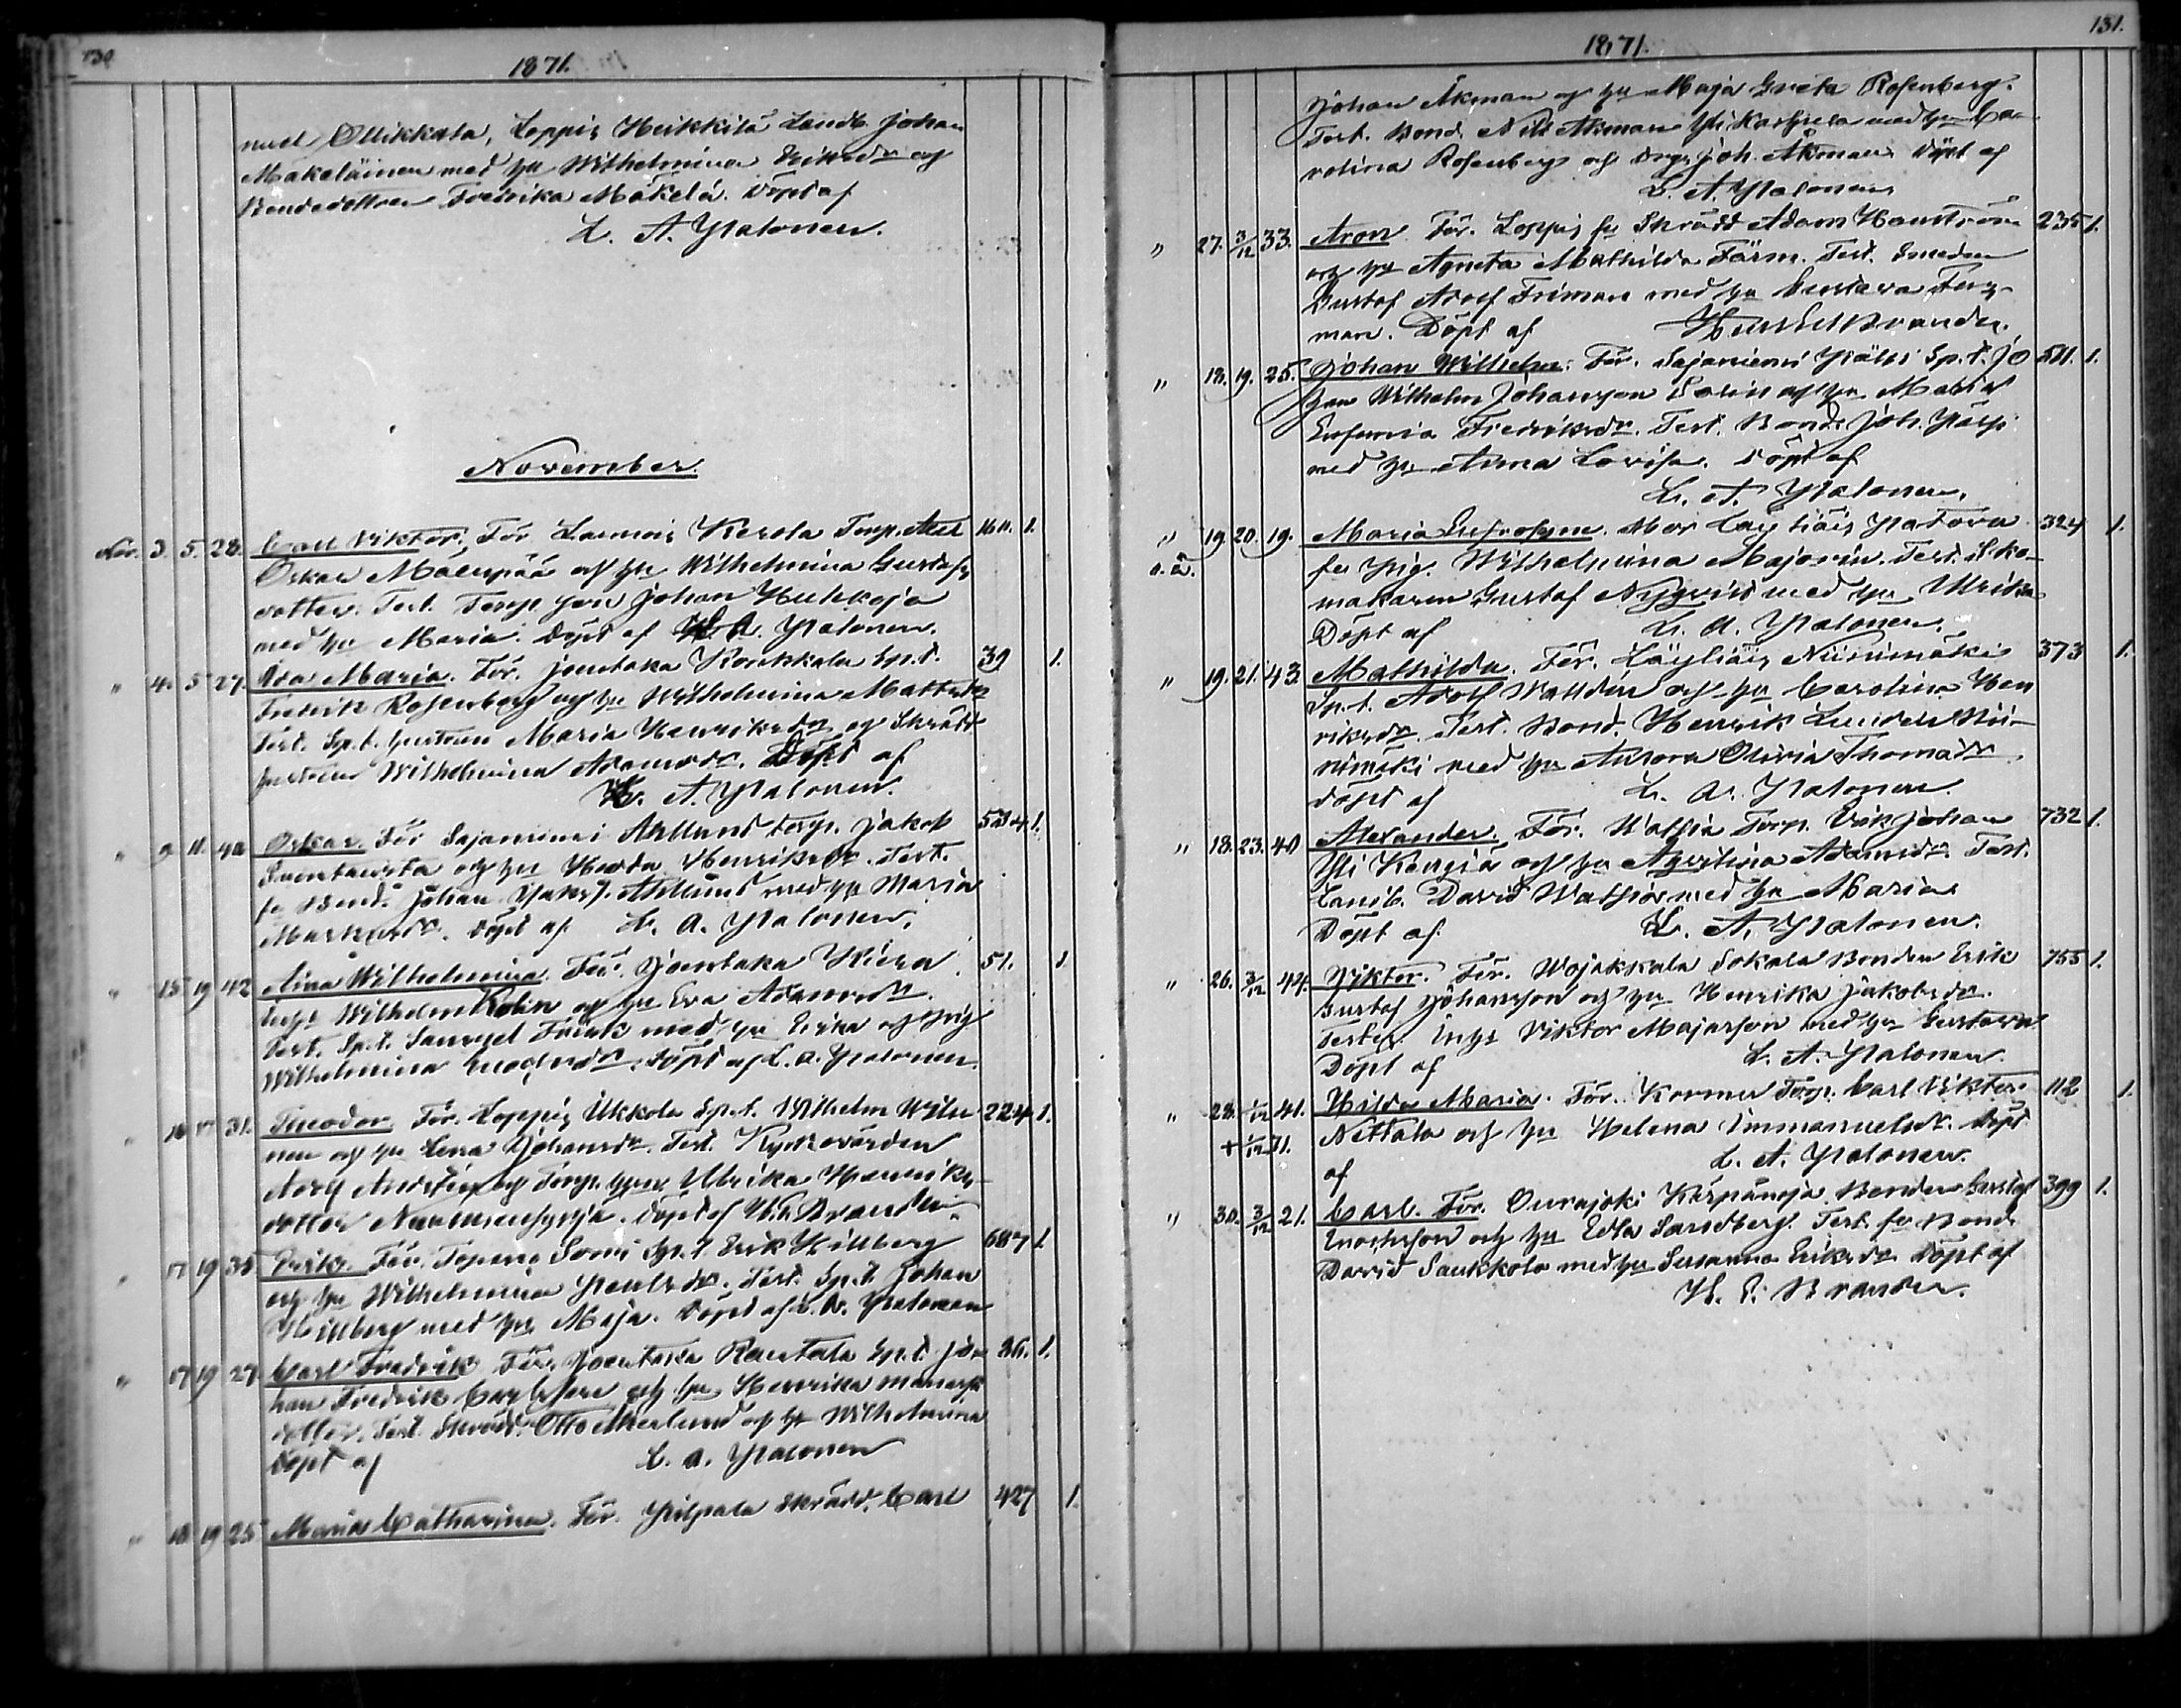 130
1871.
med Ollikkala, Loppis Heikkilä Landb. Johan
Makeläinen med hu Wilhelmina Eriksdr och
Bondedottren Fredrika Mäkelä. Döpt af
L. A. Palonen.
November.
Nov. 3. 5. 28. Carl Viktor. För. Lammis Kerola Torp. Axel 1611. 1.
Oskar Mäenpää och hu Wilhelmina Gustafs
dotter. Test. Torp. son Johan Huhkoja
med hu Maria. Döpt af L. A. Palonen.
" 4. 5 27. Ida Maria. För. Joentaka Konkkala Sp.t. 39 1.
Fredrik Rosenberg och hu Wilhelmina Mattsdr
Test. Sp.t. hustrun Maria Henriksdr och Skrädd
hustrun Wilhelmina Adamsdr. Döpt af
L. A. Palonen.
" 9 11. 40 Oskar. För. Sajaniemi Ahllund torp. Jakob 524. 1.
Suontausta och hu Hedda Henriksdr. Test.
fr Bond. Johan Jakobs. Ahllund med hu Maria
Markusdr. Döpt af L. A. Palonen.
" 15 19 42 Aina Wilhelmina. För. Joentaka Kiera 51. 1
Inhs Wilhelm Kolin och hu Eva Adamsdr.
Test. Sp.t. Samuel Frisk med hu Erika och pig
Wilhelmina Enochsdr. Döpt af L. A. Palonen.
" 16 17 31. Theodor. För. Loppis Ukkola Sp.t. Wilhelm Wile 224 1.
nen och hu Lena Johansdr. Test. Kyrkovärden
Adolf Anderssin och Torp. hun Ulrika Henriks
dotter. Döpt af H. E. Brander.
" 17 19 35 Erik. För. Topeno Somi Sp.t. Erik Hillberg 607 1
och hu Wilhelmina Paulsdr. Test. Sp.t. Johan
Hillberg med hu Maja. Döpt af L. A. Palonen
" 17 19 27. Carl Fredrik. För. Joentaka Rantala Sp.t. Jo= 26. 1.
han Fredrik och hu Henrika Manasse
dotter. Test. Skrädd. Otto Åkerlund och hu Wilhelmina
Döpt af L. A. Palonen
" 18 19 25. Maria Catharina. För. Pilpala Skrädd. Carl 427 1.
131.
1871.
Johan Åkman och hu Maja Greta Rosenberg.
Test. Bond. Nils Åkman med hu Ca
rolina Rosenberg och drgs Joh. Åkman. Döpt af
L. A. Palonen
" 27. 3/12 33. Aron. För. Loppis fr Skrädd Adam Hanström 235 1.
och hu Agneta Mathilda Färm. Test. Smeden
Gustaf Adolf Friman med hu Gustava Fri
man. Döpt af H. E. Brander.
" 18. 19. 25. Johan Wilhelm. För. Sajaniemi Pälsi Sp.t. Jo 511. 1.
han Wilhelm Johansson Dalin och hu Maria
Eufemia Fredriksdr. Test. Bond. Joh. Pälsi
med hu Anna Lovisa. Döpt af
L. A. Palonen.
" 19 20. 19. Maria Eufrosyne. Mor Läyliäis Patova 324 1.
o.ä. fr pig. Wilhelmina Majorin. Test. Sko
makaren Gustaf Nyqvist med hu Ulrika
Döpt af L. A. Palonen.
" 19. 21. 43. Mathilda. För. Läyliäis Niinimäki 373 1.
Sp.t. Adolf Walldin och hu Carolina Hen
riksdr. Test. Bond. Henrik Lunden Nii
nimäki med hu Aurora Olivia Thomasdr
Döpt af L. A. Palonen.
" 18. 23. 40 Alexander. För. Watsia Torp. Erik Johan 732 1.
Yli Kangia och hu Agvilina Adamsdr. Test.
Landb. David Watsia med hu Maria
Döpt af L. A. Palonen.
" 26. 3/12 44. Viktor. För. Wojakkala Sokala Bonden Erik 755 1.
Gustaf Johansson och hu Henrika Jakobsdr.
Testes Inhs Viktor Majasson med hu Gustava
Döpt af L. A. Palonen.
" 28. 1/12 41. Hilda Maria. För. Kormu Torp. Carl Viktor 112 1.
+ 1/12 71. Nettala och hu Helena Immanuelsdr. Döpt
af L. A. Palonen.
" 30. 3/12 21. Carl. För. Ourajoki Kärpänoja Bonden Gustaf 399 1.
Enochsson och hu Edla Sandberg. Test. fr Bond.
David Saukkola med hu Susanna Eriksdr. Döpt af
H. E. Brander.